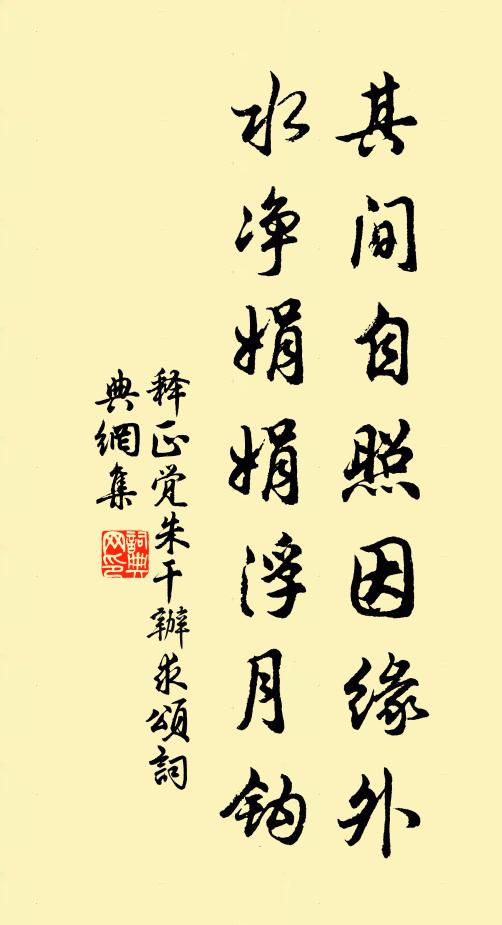 其间自照因缘外
水净娟娟浮月钩
释正觉朱干辦求頌詞
典網集
詞典网印